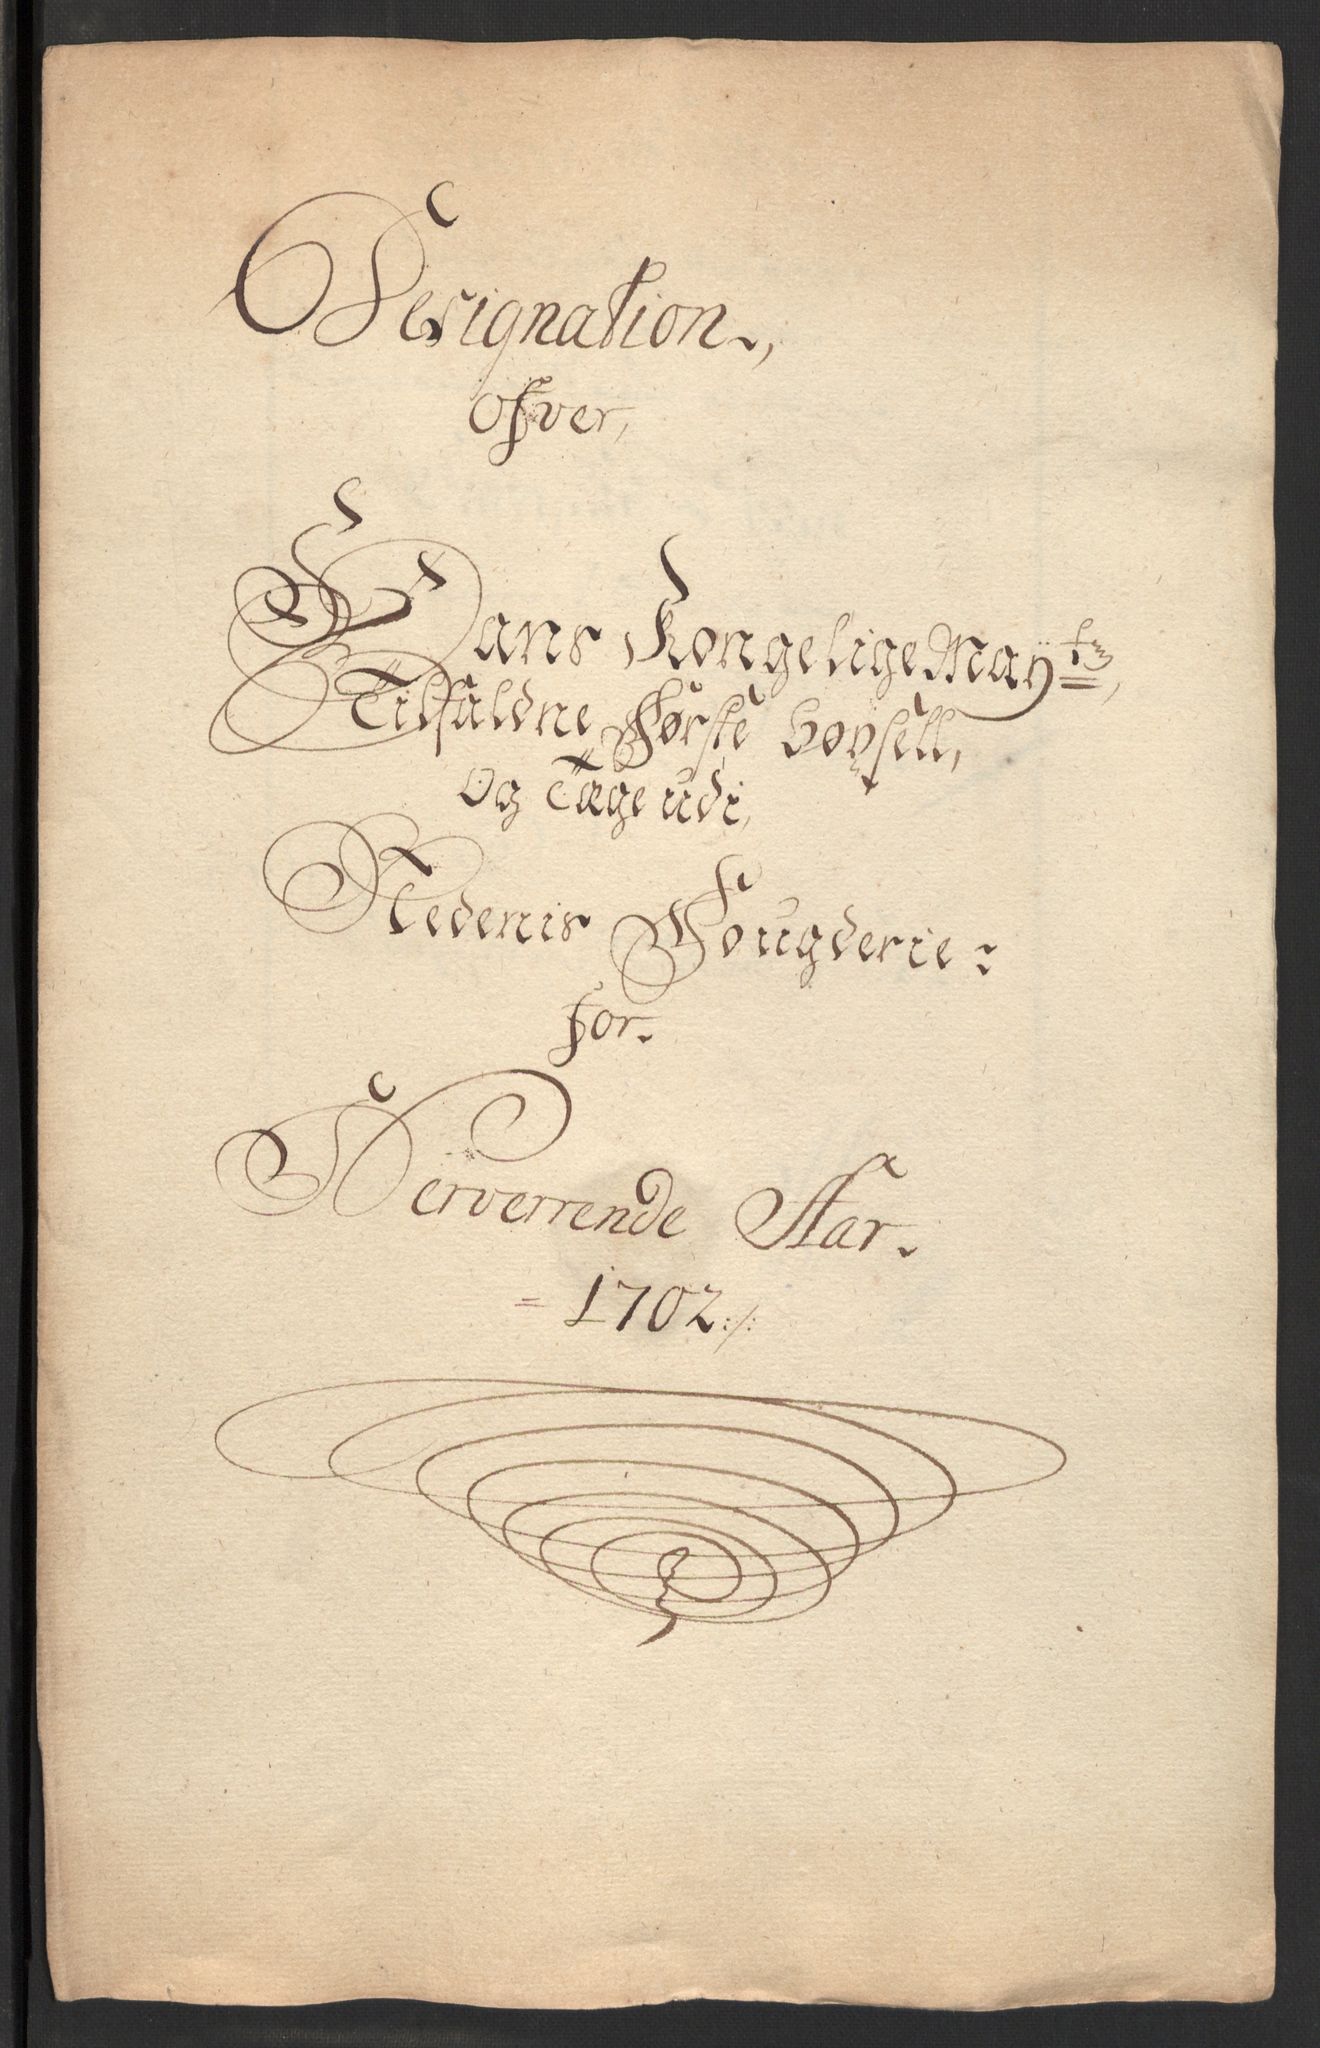 Designation,
ofver,
Hans Kongelige May:ts,
Tilfaldne Første Boysell,
og Tæge udi,
Nedenis Fougderie:
for.
Nerverrende Aar.
= 1702:/: